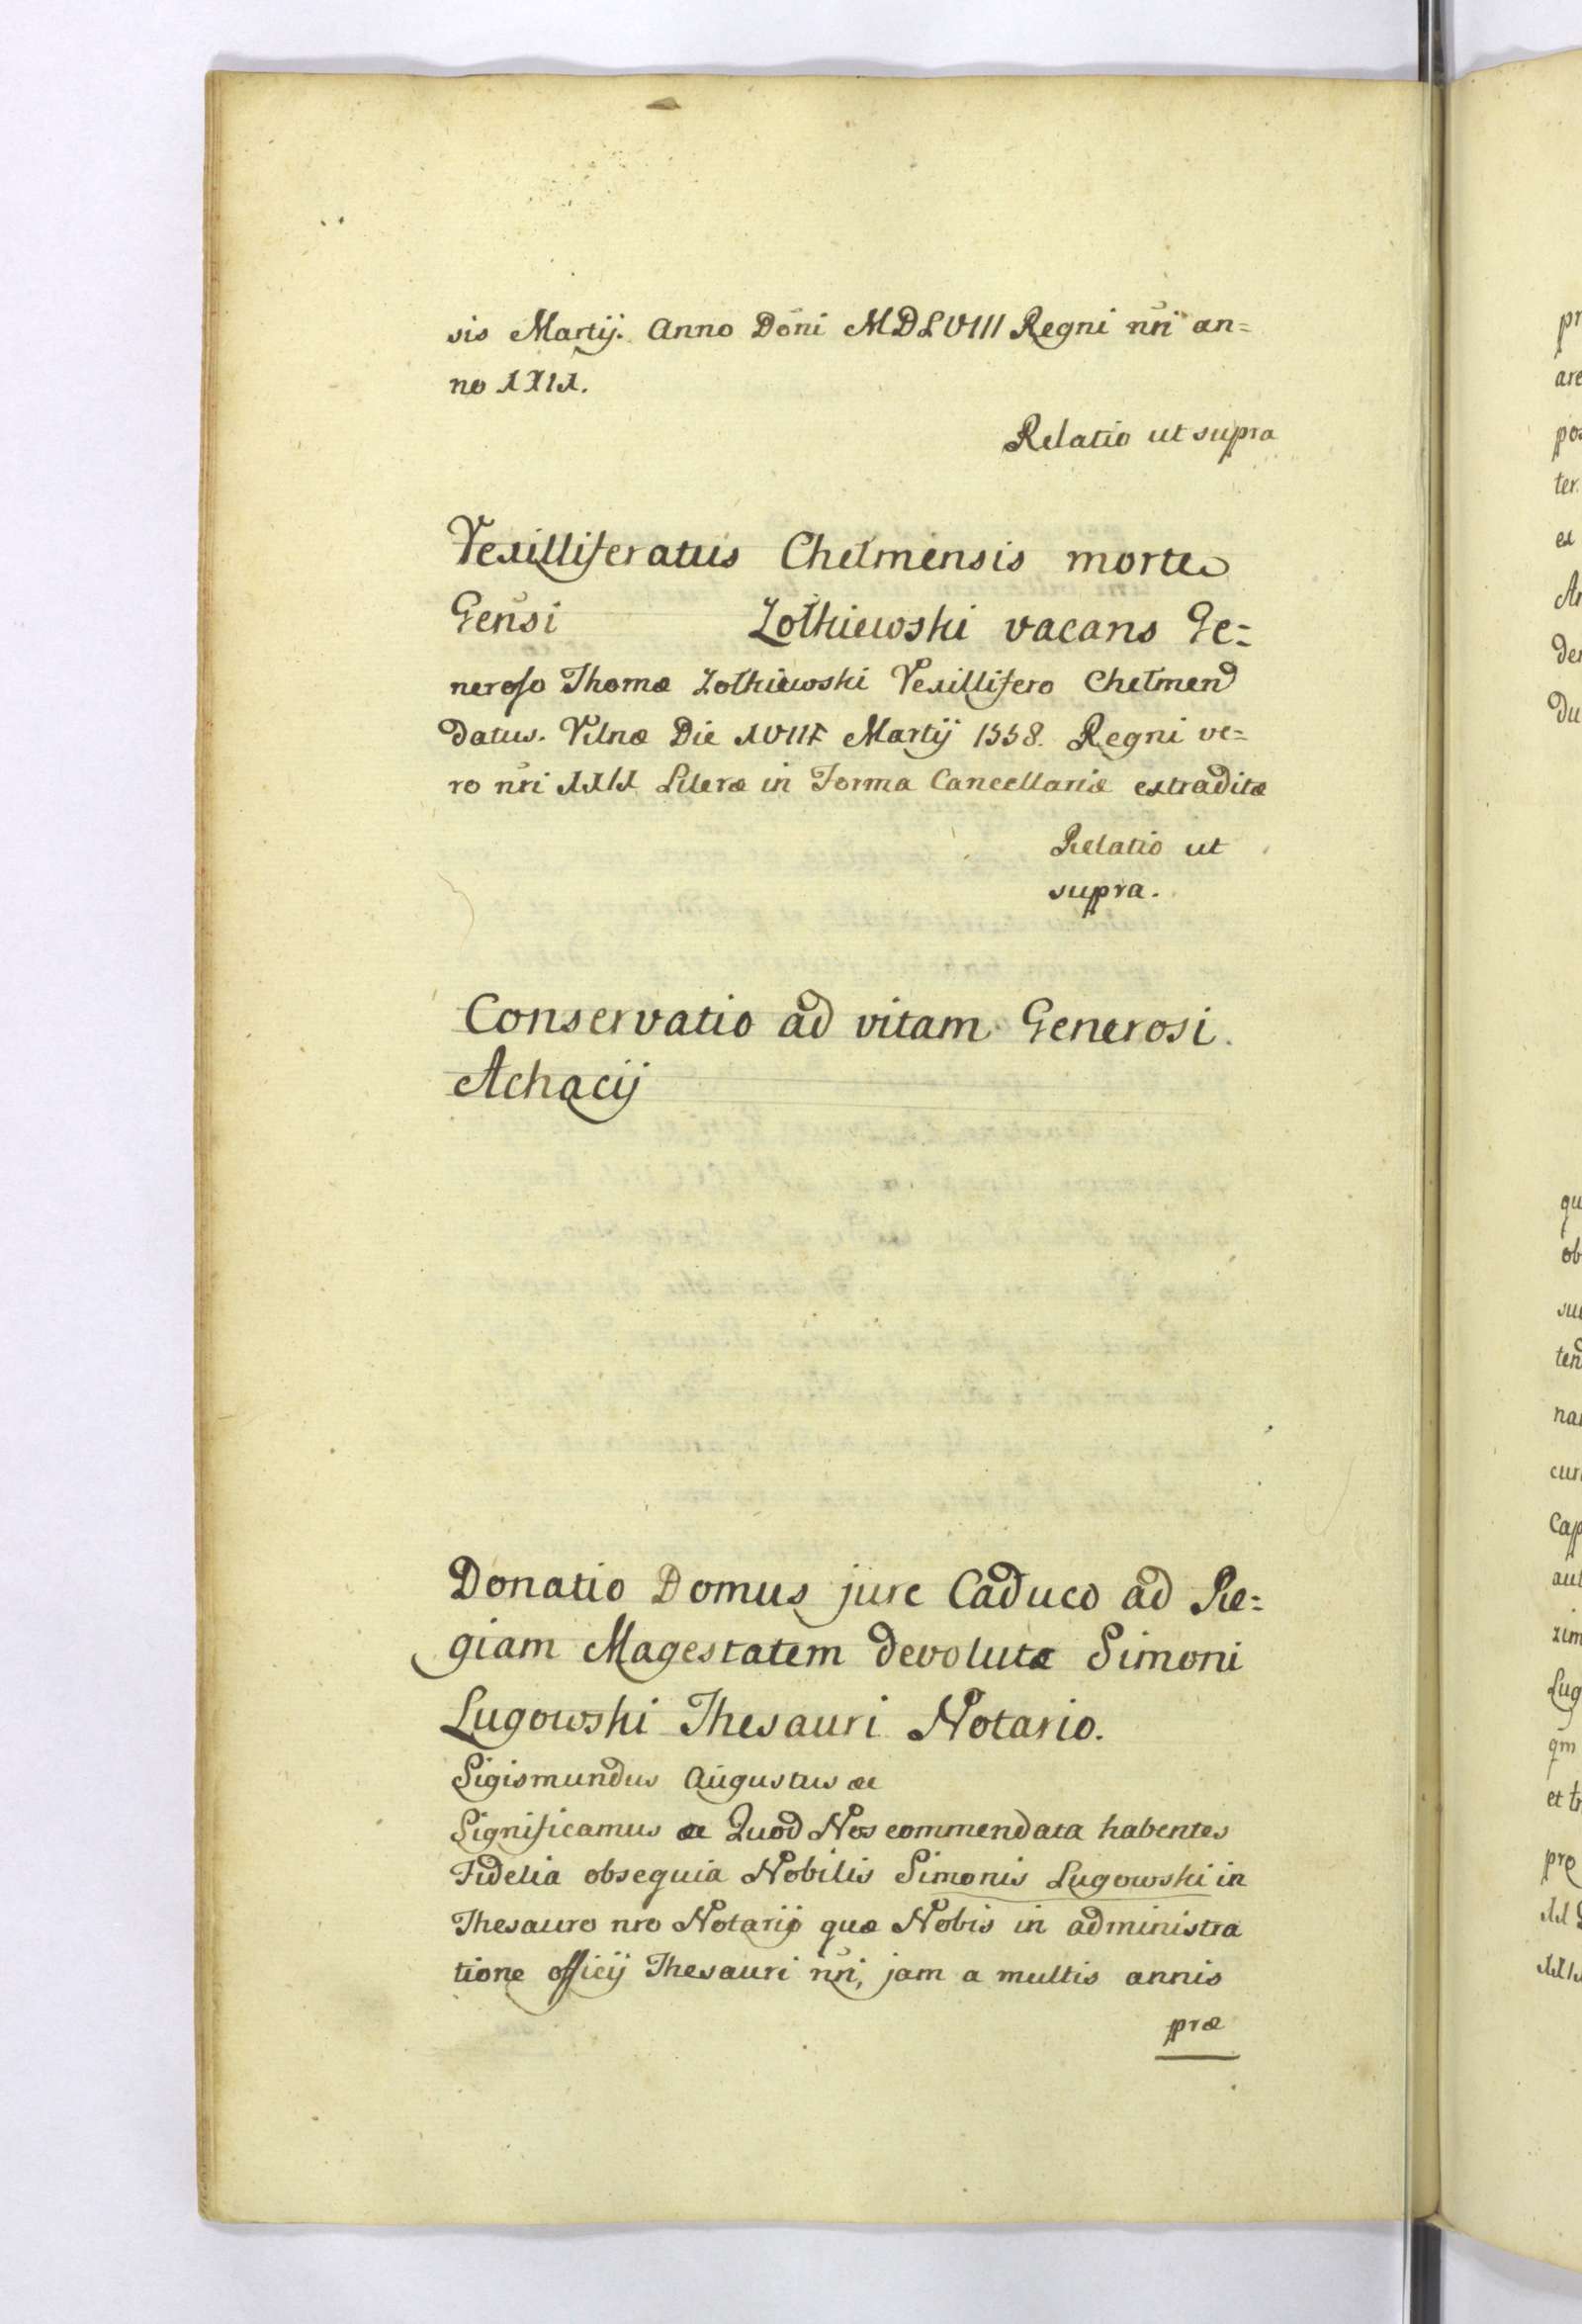 sis Martij. Anno Dōni MDLVIII Regni nr̄i an=
no XXIX.
Relatio ut supra
Vexilliferatus Chełmensis morte
Geñsi Zołkiewski vacans Ge=
neroso Thomæ Zołkiewski Vexillifero Chełmen
datus. Vilnæ Die XVIII Martij 1558. Regni ve=
ro nr̄i XXIX Literæ in Forma Cancellariæ extraditæ
Relatio ut
supra.
Conservatio ad vitam Generosi
Achacij
Donatio Domus jure Caduco ad Re=
giam Magestatem devolutæ Simoni
Lugowski Thesauri Notario.
Sigismundus Augustus &c
Significamus &c Quod Nos commendata habentes
Fidelia obsequia Nobilis Simonis Lugowski in
Thesauro nro Notarij quæ Nobis in administra
tione officij Thesauri nr̄i, jam a multis annis
præ